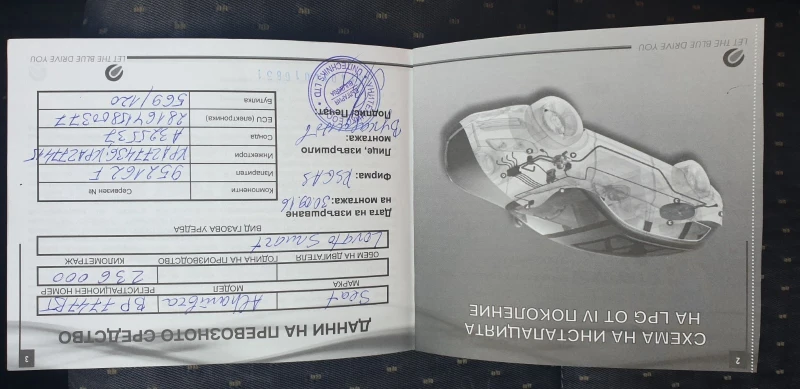 2
СХЕМА НА ИНСТАЛАЦИЯТА
НА LPG ОТ IV ПОКОЛЕНИЕ
LET THE BLUE DRIVE YOU
3
ДАННИ НА ПРЕВОЗНОТО СРЕДСТВО
Seat Alhambra BP 7747BT
МАРКА МОДЕЛ РЕГИСТРАЦИОНЕН НОМЕР
236 000
ОБЕМ НА ДВИГАТЕЛЯ ГОДИНА НА ПРОИЗВОДСТВО КИЛОМЕТРАЖ
Lovato Smart
ВИД ГАЗОВА УРЕДБА
Дата на извършване
на монтажа: 30.09.16
Фирма: RSGAS
Лице, извършило
монтажа:
Подпис/Печат:
Компоненти Сериен №
Изпарител 952162 F
Инжектори
Сонда A325537
ECU (електроника) 2816415800377
Бутилка 569/120
LET THE BLUE DRIVE YOU